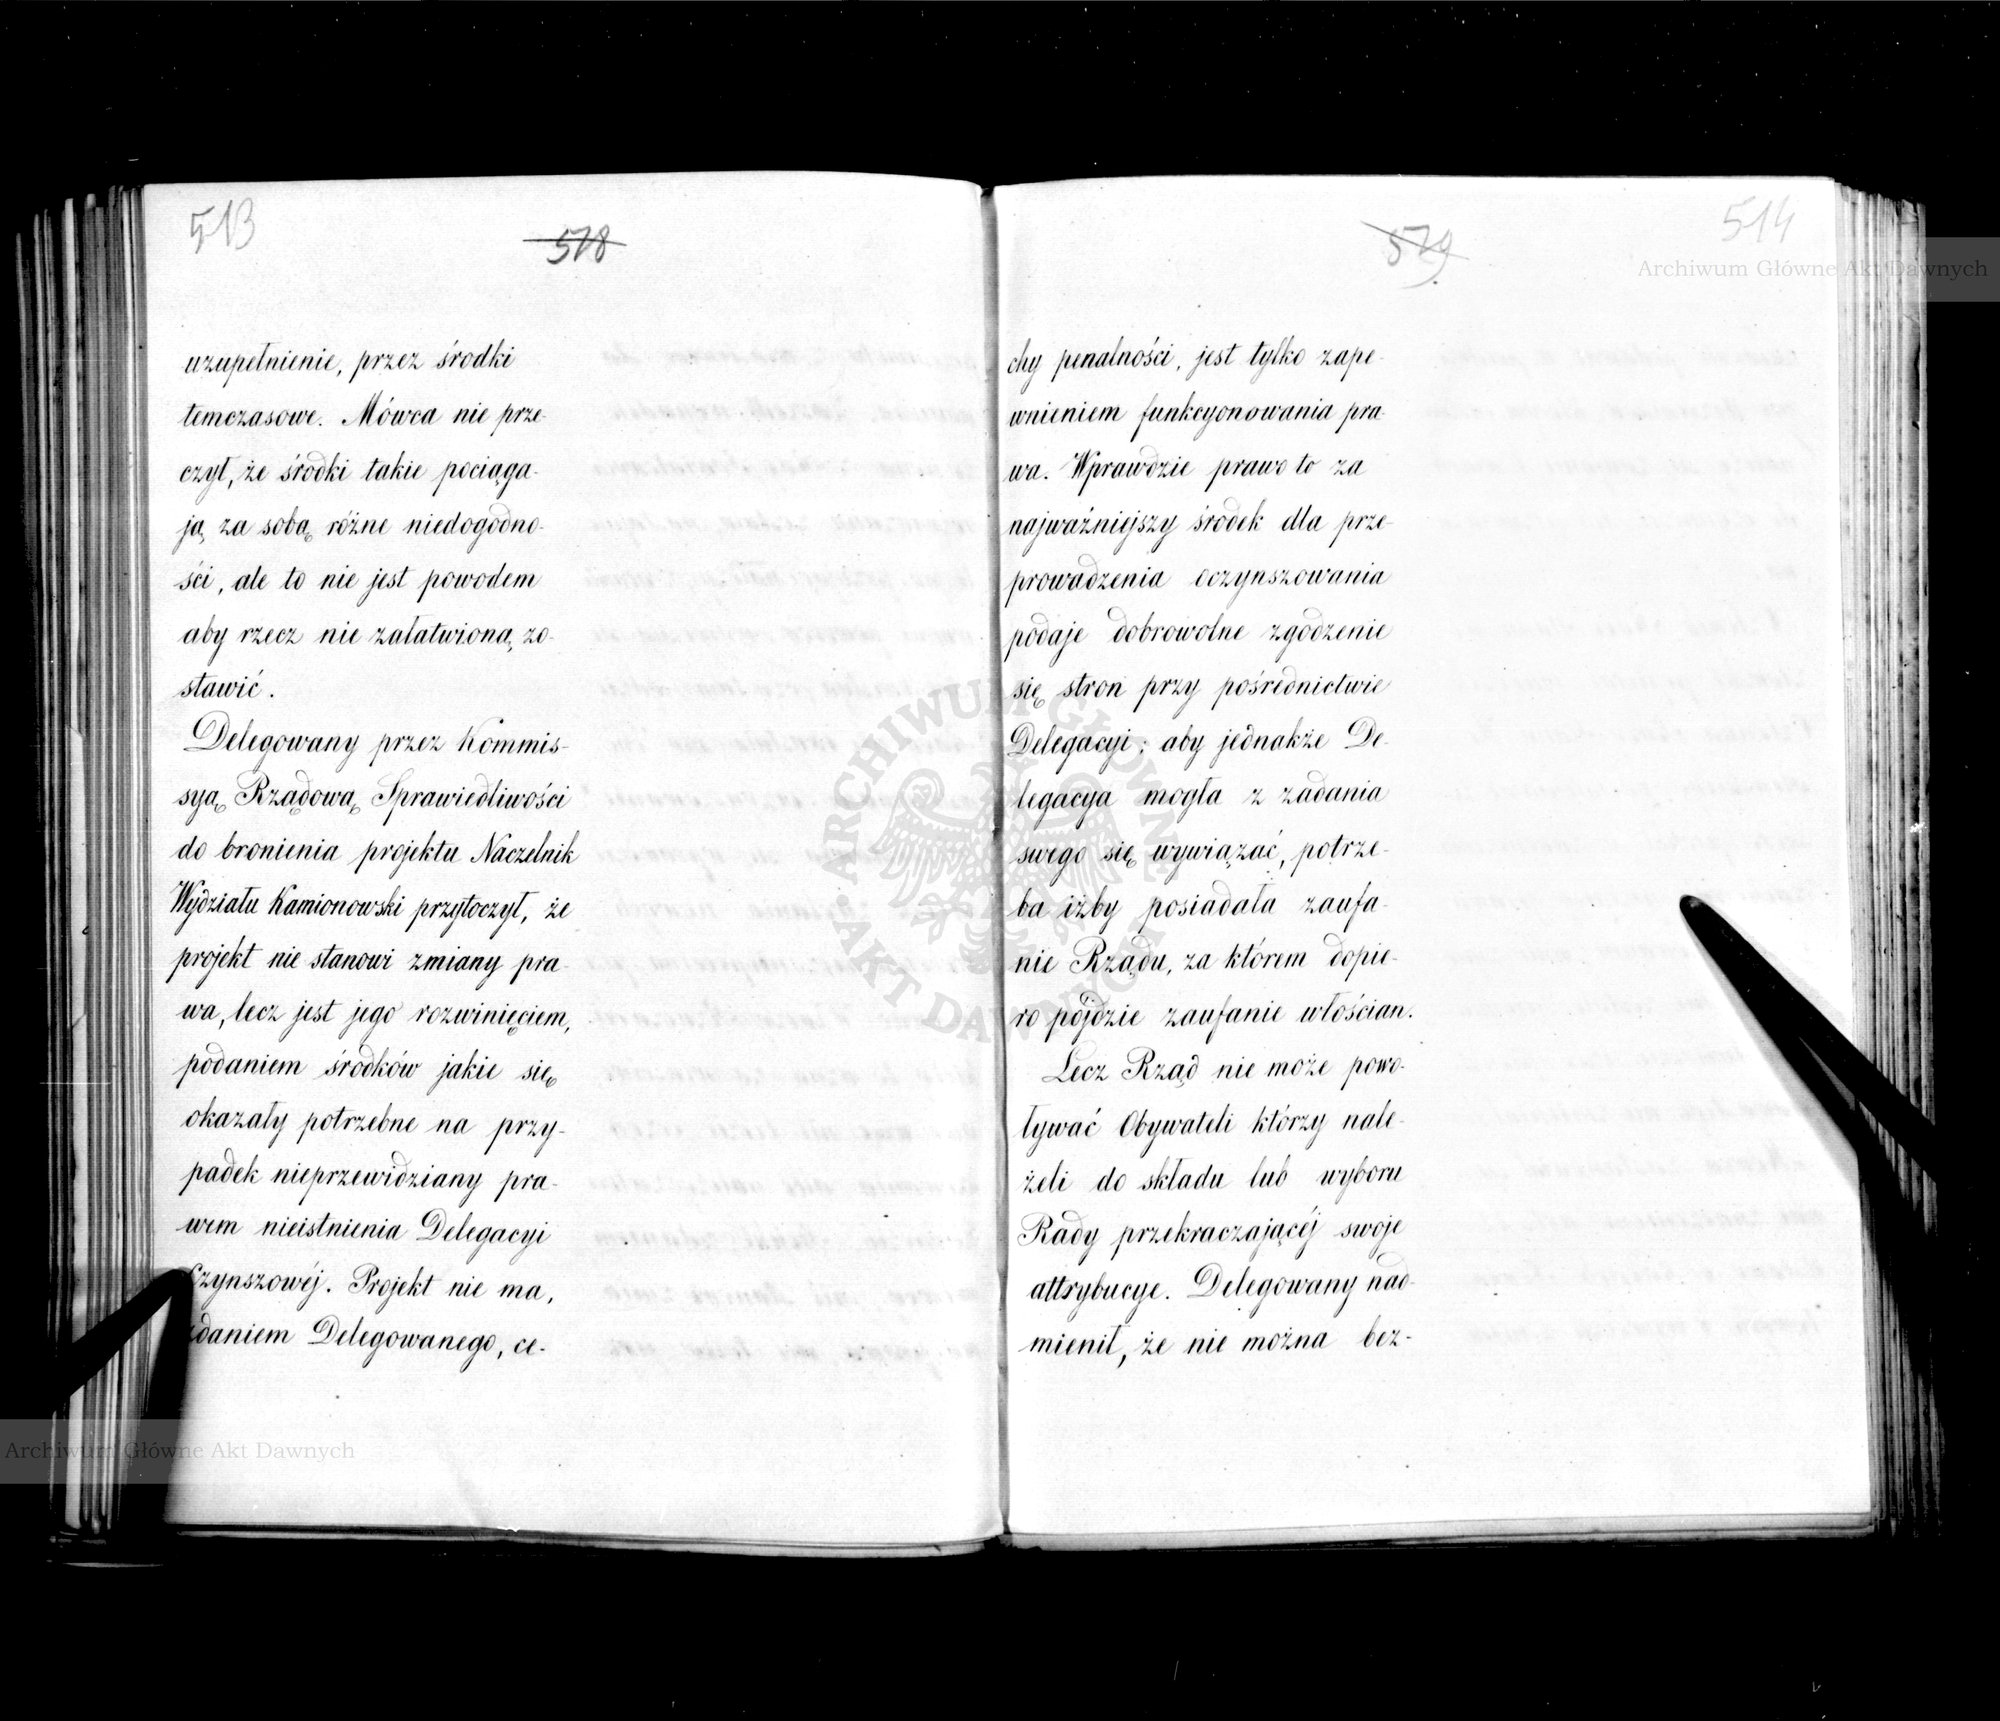 513
578
uzupełnienie, przez środki
temczasowe. Mówca nie prze-
czył, że środki takie pociąga-
ją za sobą różne niedogodno-
ści, ale to nie jest powodem
aby rzecz nie załatwioną zo-
stawić.
Delegowany przez Kommis-
syą Rządową Sprawiedliwości
do bronienia projektu Naczelnik
Wydziału Kamionowski przytoczył, że
projekt nie stanowi zmiany pra-
wa, lecz jest jego rozwinięciem,
podaniem środków jakie się
okazały potrzebne na przy-
padek nieprzewidziany pra-
wem nieistnienia Delegacyi
Czynszowéj. Projekt nie ma,
zdaniem Delegowanego, ce-
579
514
chy penalności, jest tylko zape-
wnieniem funkcyonowania pra-
wa. Wprawdzie prawo to za
najważniejszy środek dla prze-
prowadzenia oczynszowania
podaje dobrowolne zgodzenie
się stron przy pośrednictwie
Delegacyi; aby jednakże De-
legacya mogła z zadania
swego się wywiązać, potrze-
ba iżby posiadała zaufa-
nie Rządu, za którem dopie-
ro pójdzie zaufanie włościan.
Lecz Rząd nie może powo-
ływać Obywateli którzy nale-
żeli do składu lub wyboru
Rady przekraczającéj swoje
attrybucye. Delegowany nad-
mienił, że nie można bez-
Archiwum Główne Akt Dawnych
Archiwum Główne Akt Dawnych
ARCHIWUM GŁÓWNE AKT DAWNYCH